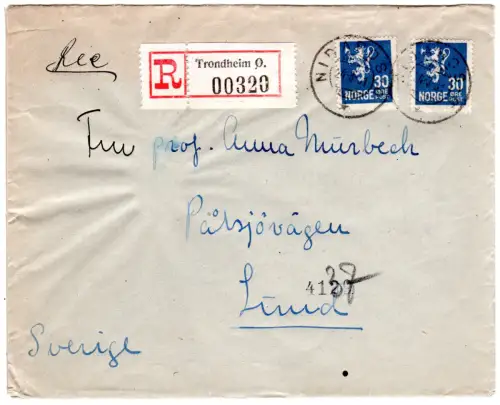 Rec
R
Trondheim Ø.
00320
30
NORGE
ØRE
30
NORGE
ØRE
Fru prof. Anna Murbeck
Påtsjövägen
Lund
Sverige